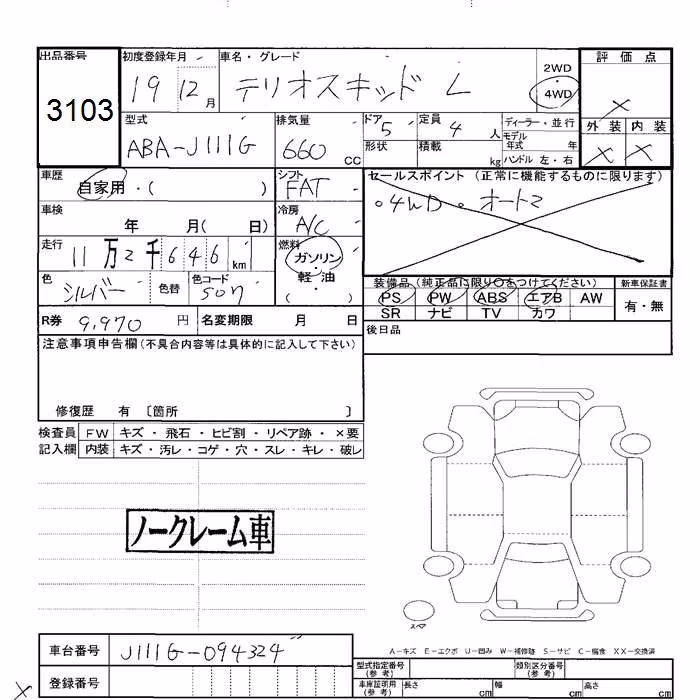 出品番号
3103
初度登録年月
19 12 月
車名・グレード
テリオスキッド L
2WD
4WD
評価点
×
型式
ABA-J111G
排気量
660 CC
ドア 5
定員 4 人
ディーラー・並行
モデル年式 年
形状
積載 kg
ハンドル 左・右
外装 内装
× ×
車歴
自家用・( )
シフト
FAT
セールスポイント (正常に機能するものに限ります)
・4WD ・オートマ
車検
年 月( 日)
冷房
A/C
走行
11万2千646 km
燃料
ガソリン・
軽・油
( )
色
シルバー
色替
色コード
S07
装備品 (純正品に限り○をつけてください)
新車保証書
PS PW ABS エアB AW
SR ナビ TV カワ
有・無
R券 9,970 円
名変期限 月 日
後日品
注意事項申告欄(不具合内容等は具体的に記入して下さい)
修復歴 有 〔箇所 〕
検査員記入欄
FW キズ・飛石・ヒビ割・リペア跡・×要
内装 キズ・汚レ・コゲ・穴・スレ・キレ・破レ
ノークレーム車
スペア
A-キズ E-エクボ U-凹み W-補修跡 S-サビ C-腐食 XX-交換済
車台番号 J111G-094324
登録番号
型式指定番号(参考)
類別区分番号(参考)
車庫証明用(参考) 長さ cm 幅 cm 高さ cm
×